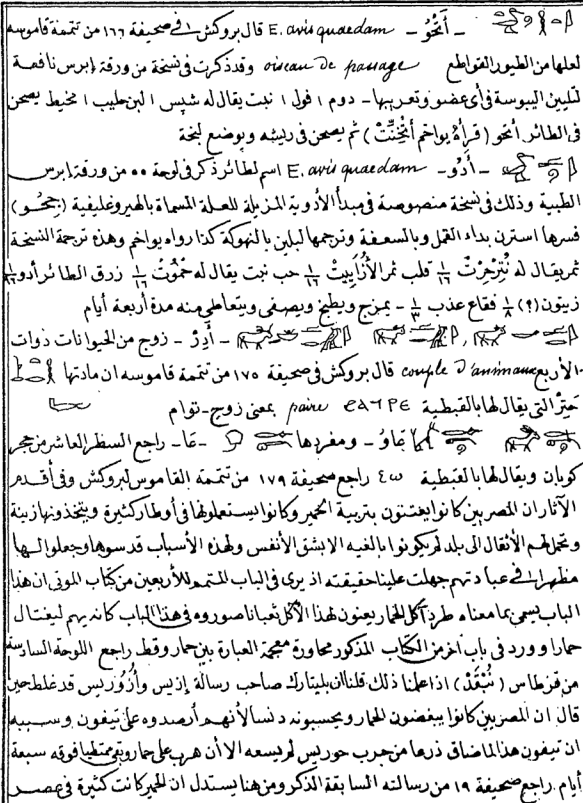 - أَنْخُوُ - E. avis quaedam قال بروكش في صحيفة ١٦٦ من تتمة قاموسه
لعلها من الطيور القواطع oiseau de passage وقد ذكرت في نسخة من ورقة إبرس نافعة
لتليين اليبوسة في أي عضو وتعريبها - دوم ١ فول ١ نبت يقال له شبس ١ لبن حليب ١ مخيط يصحن
في الطائر أنخو (قرأه يواخم أنْخِنَّتْ) ثم يصحن في ريشه ويوضع لبخة
- أَدُو - E. avis quaedam اسم لطائر ذكر في لوحة ٥٥ من ورقة إبرس
الطبية وذلك في نسخة منصوصة في مبدأ الأدوية المزيلة للعلة المسماة بالهيروغليفية (جحُو)
فسرها استرن بداء القمل وبالسعفة وترجمها لبلين بالنهوكة كذا رواه يواخم وهذه ترجمة النسخة
ثمر يقال له ١/١٦ قلب ثمر ١/١٦ حب نبت يقال له ١/١٦ زرق الطائر أدو ١/١٦
زيتون (؟) ١/٨ فقاع عذب ١/٣ - يمزج ويطبخ ويصفى ويتعاطى منه مدة أربعة أيام
- أَدِرْ - زوج من الحيوانات ذوات
الأربع couple d'animaux قال بروكش في صحيفة ١٧٥ من تتمة قاموسه ان مادتها
حَتِرْ التي يقال لها بالقبطية ϩⲁⲧⲣⲉ paire بمعنى زوج - توام
- عَاوُ - ومفردها - عَا - راجع السطر العاشر من حجر
كوبان ويقال لها بالقبطية ⲉⲱ راجع صحيفة ١٧٩ من تتمة القاموس لبروكش وفي أقدم
الآثار ان المصريين كانوا يعتنون بتربية الحمير وكانوا يستعملونها في أوطار كثيرة ويتخذونها زينة
وتحمل لهم الأثقال الى بلد لم يكونوا بالغيه الا بشق الأنفس ولهذه الأسباب قدسوها وجعلوا لها
مظهرا في عباداتهم جهلت علينا حقيقته اذ يرى في الباب المتمم للأربعين من كتاب الموتى ان هذا
الباب يسمى بما معناه طرد آكل الحمار يعنون لهذا الآكل ثعبانا صوروه في هذا الباب كانه يهم ليغتال
حمارا وورد في باب آخر من الكتاب المذكور محاورة معجمة العبارة بين حمار وقط راجع اللوحة السادسة
من قرطاس (نُبْقَدْ) اذا علمنا ذلك قلنا ان بليتارك صاحب رسالة إزيس وأزُورِيس قد غلط حين
قال ان المصريين كانوا يبغضون الحمار ويحسبونه دنسا لأنهم أرصدوه على تيفون وسببه
ان تيفون هذا لما ضاق ذرعا من حرب حوريس لم يسعه الا أن هرب على حمار وبقي ممتطيا فوقه سبعة
أيام راجع صحيفة ١٩ من رسالته السابقة الذكر ومن هنا يستدل ان الحمير كانت كثيرة في مصر